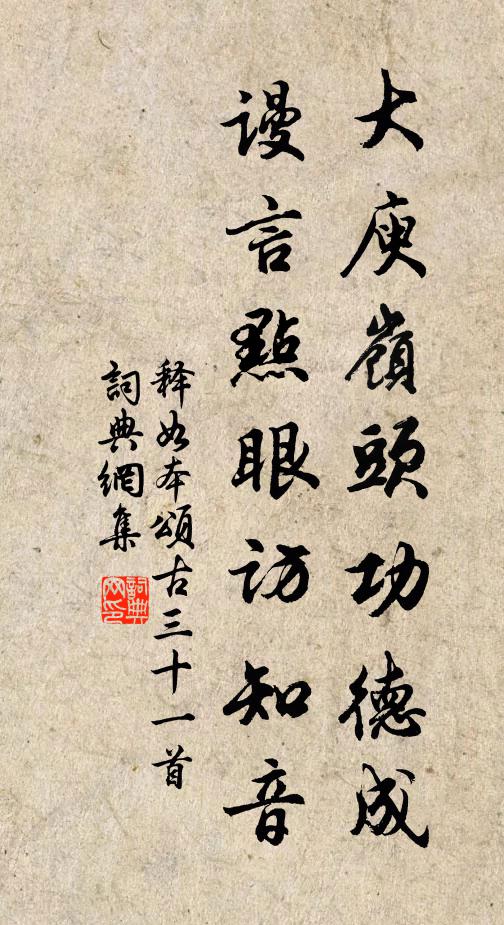 大庾嶺頭功德成
謾言點眼訪知音
释如本頌古三十一首
詞典網集
詞典網印